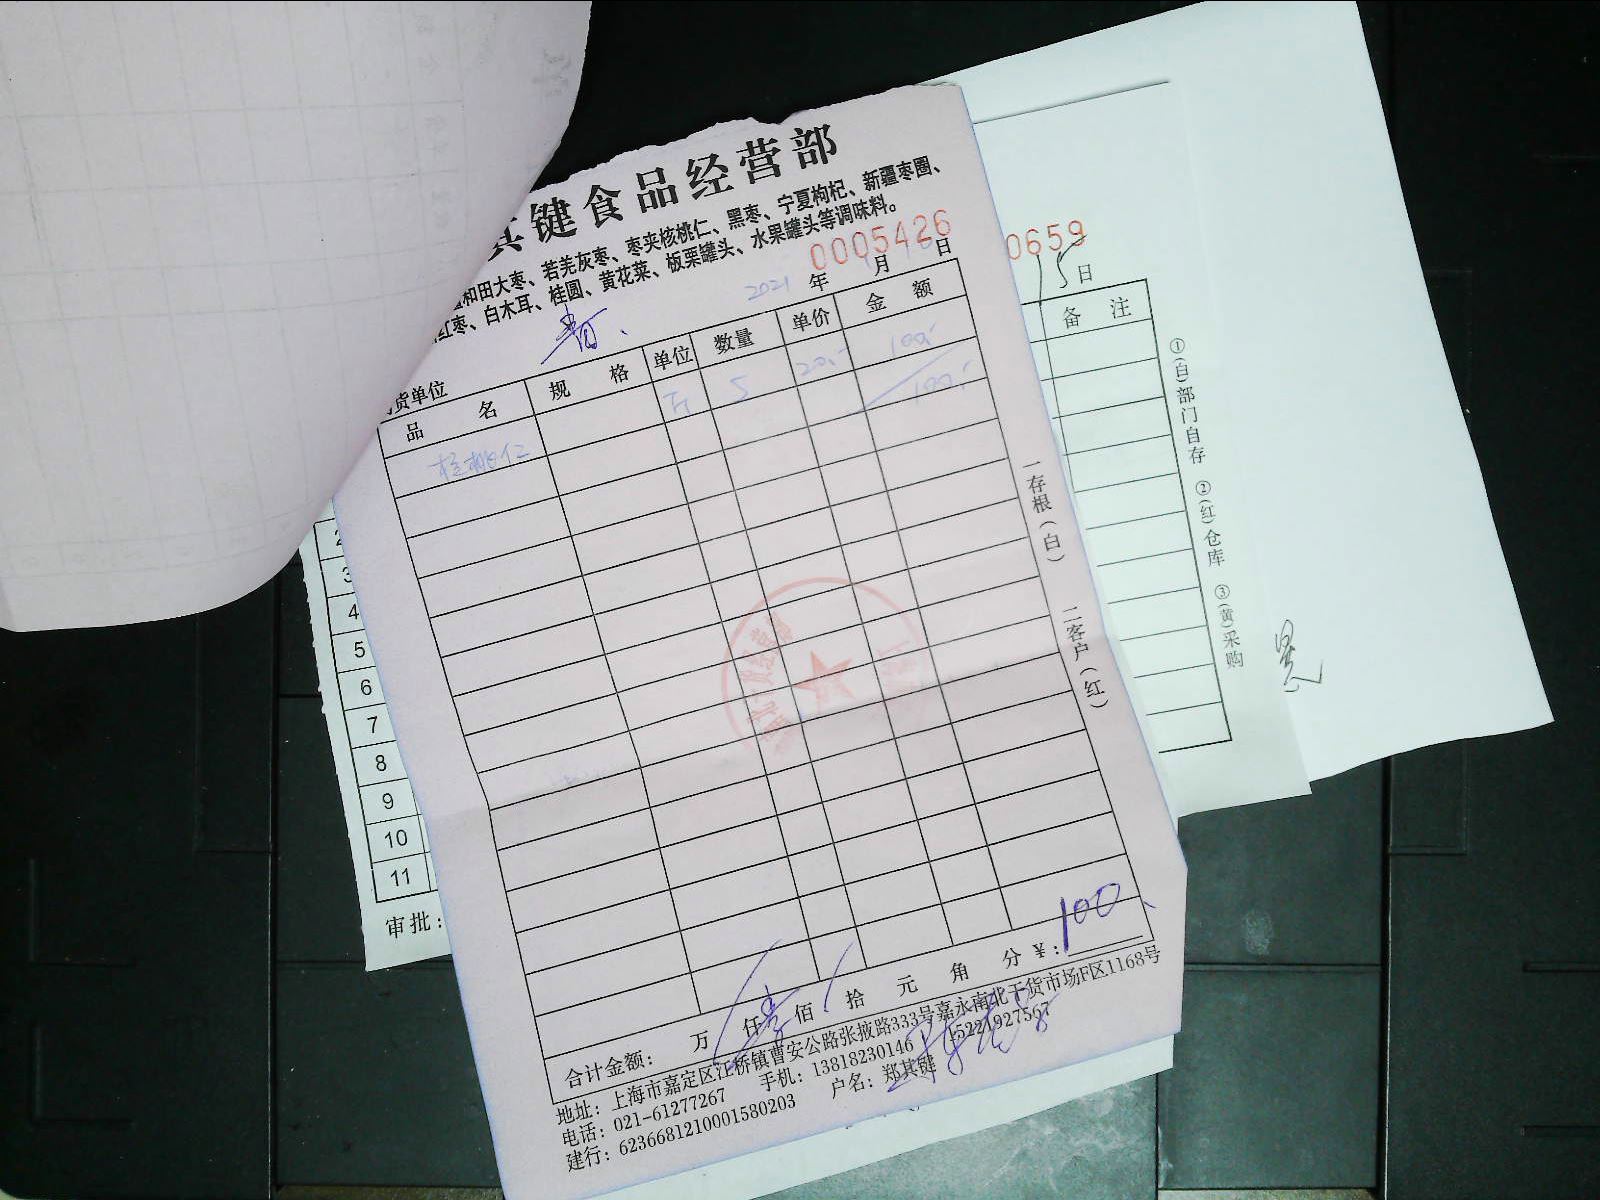 其键食品经营部
和田大枣、若羌灰枣、枣夹核桃仁、黑枣、宁夏枸杞、新疆枣圈、
红枣、白木耳、桂圆、黄花菜、板栗罐头、水果罐头等调味料。
0005426
2021 年 月 日
货单位
品 名 规 格 单位 数量 单价 金 额
核桃仁 斤 5 20.- 100.-
100.-
一存根(白) 二客户(红)
合计金额: 万 仟 壹 佰 拾 元 角 分 ¥: 100.
地址: 上海市嘉定区江桥镇曹安公路张掖路333号嘉永南北干货市场F区1168号
电话: 021-61277267 手机: 13818230146 15221927567
建行: 6236681210001580203 户名: 郑其键
0659
15日
备 注
①(白)部门自存 ②(红)仓库 ③(黄)采购
2
3
4
5
6
7
8
9
10
11
审批: